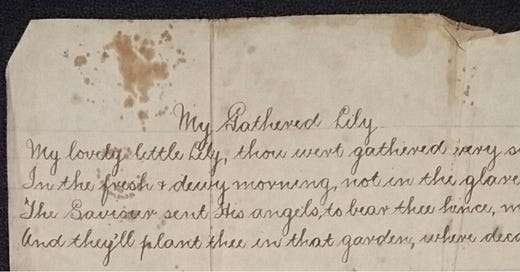 My Gathered Lily
My lovely little Lily, thou wert gathered very
In the fresh & dewy morning, not in the glare
The Saviour sent His angels, to bear thee hence,
And they'll plant thee in that garden, where